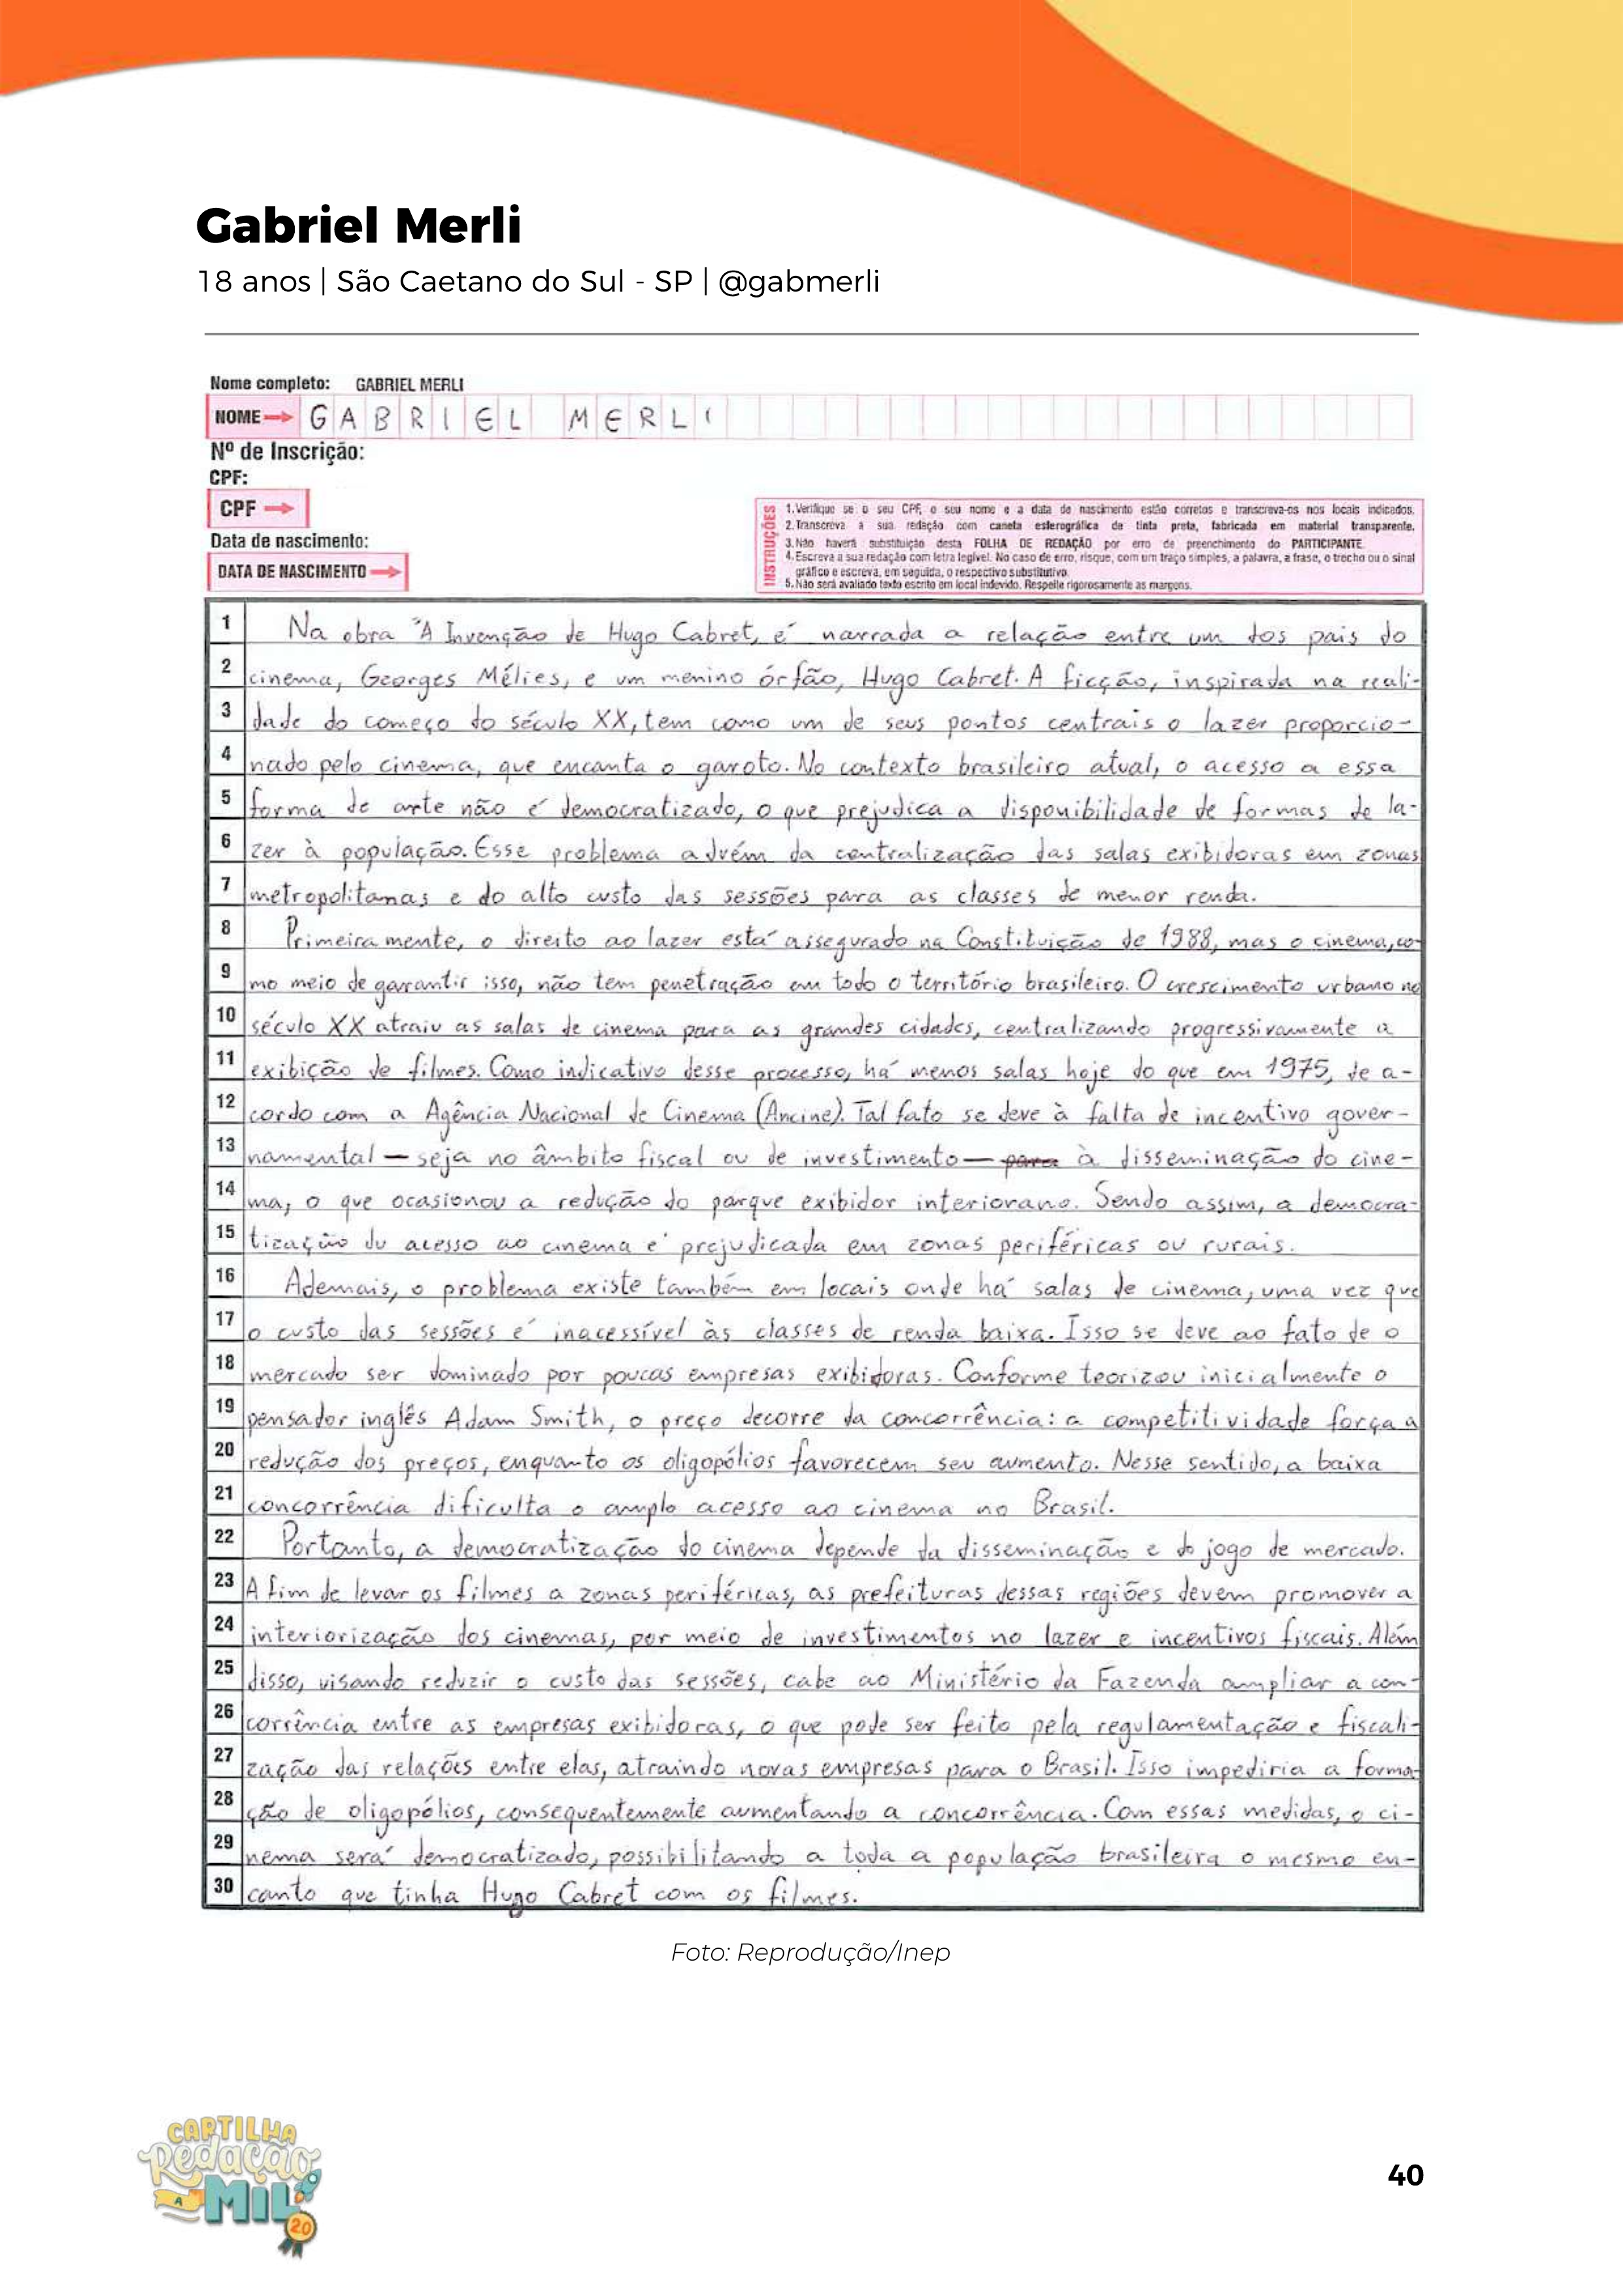 Gabriel Merli
18 anos | São Caetano do Sul - SP | @gabmerli
Nome completo: GABRIEL MERLI
NOME GABRIEL MERLI
Nº de Inscrição:
CPF:
CPF
Data de nascimento:
DATA DE NASCIMENTO
INSTRUÇÕES
1. Verifique se o seu CPF, o seu nome e a data de nascimento estão corretos e transcreva-os nos locais indicados.
2. Transcreva a sua redação com caneta esferográfica de tinta preta, fabricada em material transparente.
3. Não haverá substituição desta FOLHA DE REDAÇÃO por erro de preenchimento do PARTICIPANTE.
4. Escreva a sua redação com letra legível. No caso de erro, risque, com um traço simples, a palavra, a frase, o trecho ou o sinal
gráfico e escreva, em seguida, o respectivo substitutivo.
5. Não será avaliado texto escrito em local indevido. Respeite rigorosamente as margens.
1 Na obra "A Invenção de Hugo Cabret, é narrada a relação entre um dos pais do
2 cinema, Georges Mélies, e um menino órfão, Hugo Cabret. A ficção, inspirada na reali-
3 dade do começo do século XX, tem como um de seus pontos centrais o lazer proporcio-
4 nado pelo cinema, que encanta o garoto. No contexto brasileiro atual, o acesso a essa
5 forma de arte não é democratizado, o que prejudica a disponibilidade de formas de la-
6 zer à população. Esse problema advém da centralização das salas exibidoras em zonas
7 metropolitanas e do alto custo das sessões para as classes de menor renda.
8 Primeiramente, o direito ao lazer está assegurado na Constituição de 1988, mas o cinema, co-
9 mo meio de garantir isso, não tem penetração em todo o território brasileiro. O crescimento urbano no
10 século XX atraiu as salas de cinema para as grandes cidades, centralizando progressivamente a
11 exibição de filmes. Como indicativo desse processo, há menos salas hoje do que em 1975, de a-
12 cordo com a Agência Nacional de Cinema (Ancine). Tal fato se deve à falta de incentivo gover-
13 namental — seja no âmbito fiscal ou de investimento — para à disseminação do cine-
14 ma, o que ocasionou a redução do parque exibidor interiorano. Sendo assim, a democra-
15 tização do acesso ao cinema é prejudicada em zonas periféricas ou rurais.
16 Ademais, o problema existe também em locais onde há salas de cinema, uma vez que
17 o custo das sessões é inacessível às classes de renda baixa. Isso se deve ao fato de o
18 mercado ser dominado por poucas empresas exibidoras. Conforme teorizou inicialmente o
19 pensador inglês Adam Smith, o preço decorre da concorrência: a competitividade força a
20 redução dos preços, enquanto os oligopólios favorecem seu aumento. Nesse sentido, a baixa
21 concorrência dificulta o amplo acesso ao cinema no Brasil.
22 Portanto, a democratização do cinema depende da disseminação e do jogo de mercado.
23 A fim de levar os filmes a zonas periféricas, as prefeituras dessas regiões devem promover a
24 interiorização dos cinemas, por meio de investimentos no lazer e incentivos fiscais. Além
25 disso, visando reduzir o custo das sessões, cabe ao Ministério da Fazenda ampliar a con-
26 corrência entre as empresas exibidoras, o que pode ser feito pela regulamentação e fiscali-
27 zação das relações entre elas, atraindo novas empresas para o Brasil. Isso impediria a forma-
28 ção de oligopólios, consequentemente aumentando a concorrência. Com essas medidas, o ci-
29 nema será democratizado, possibilitando a toda a população brasileira o mesmo en-
30 canto que tinha Hugo Cabret com os filmes.
Foto: Reprodução/Inep
CARTILHA
Redação
A
MIL
20
40